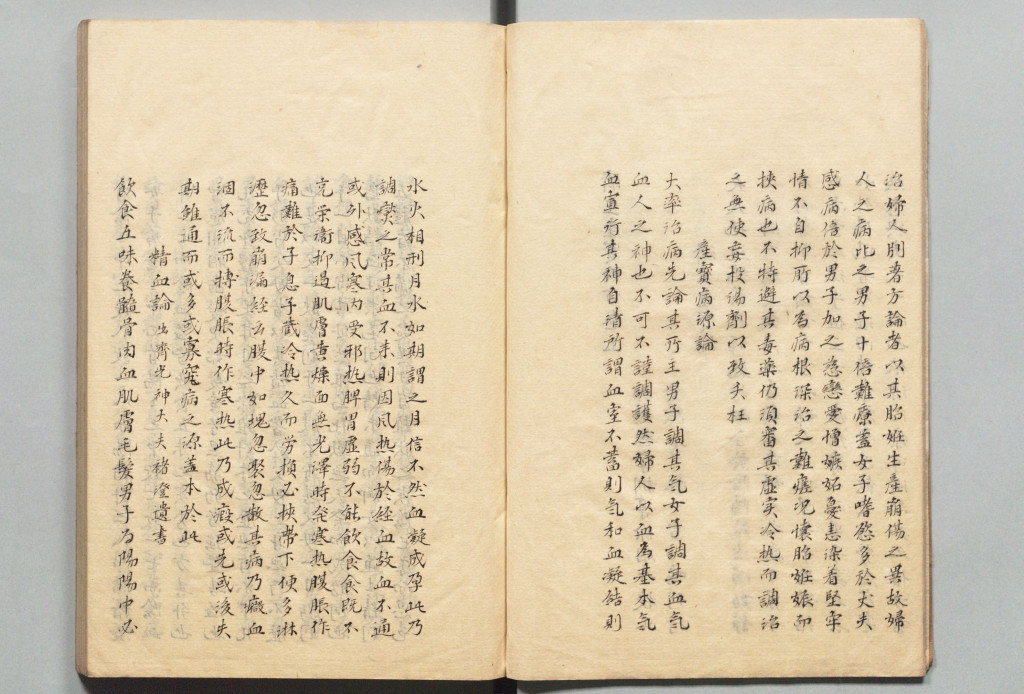 治婦人別著方論者以其胎姙生產崩傷之異故婦
人之病比之男子十倍難療蓋女子嗜慾多於丈夫
感病倍於男子加之慈戀愛憎嫉妬憂恚染着堅牢
情不自抑所以為病根深治之難瘥况懷胎姙娠而
挾病也不特避其毒藥仍須審其虛实冷熱而調治
之無使妄投湯劑以致夭枉
産寶病源論
大率治病先論其所主男子調其气女子調其血气
血人之神也不可不謹調護然婦人以血為基本气
血宣行其神自清所謂血室不蓄則气和血凝結則
水火相刑月水如期謂之月信不然血凝成孕此乃
調燮之常其血不来則因風热傷於経血故血不通
或外感風寒内受邪热脾胃虛弱不能飲食食既不
充栄衛抑遏肌膚黄燥面無光澤時発寒热腹脹作
痛難於子息子蔵冷热久而労損必挾帯下便多淋
瀝忽致崩漏経云腹中如塊忽聚忽散其病乃癥血
涸不流而搏腹脹時作寒热此乃成癥或先或後失
期雖通而或多或寡究病之源蓋本於此
精血論 出齊光神大夫褚澄遺書
飲食五味養髓骨肉血肌膚毛髮男子為陽陽中必